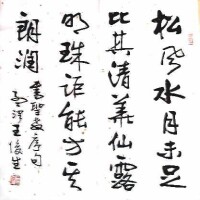 松風水月未足
比其清華仙露
明珠詎能方其
朗潤
書聖教序句
王俊生